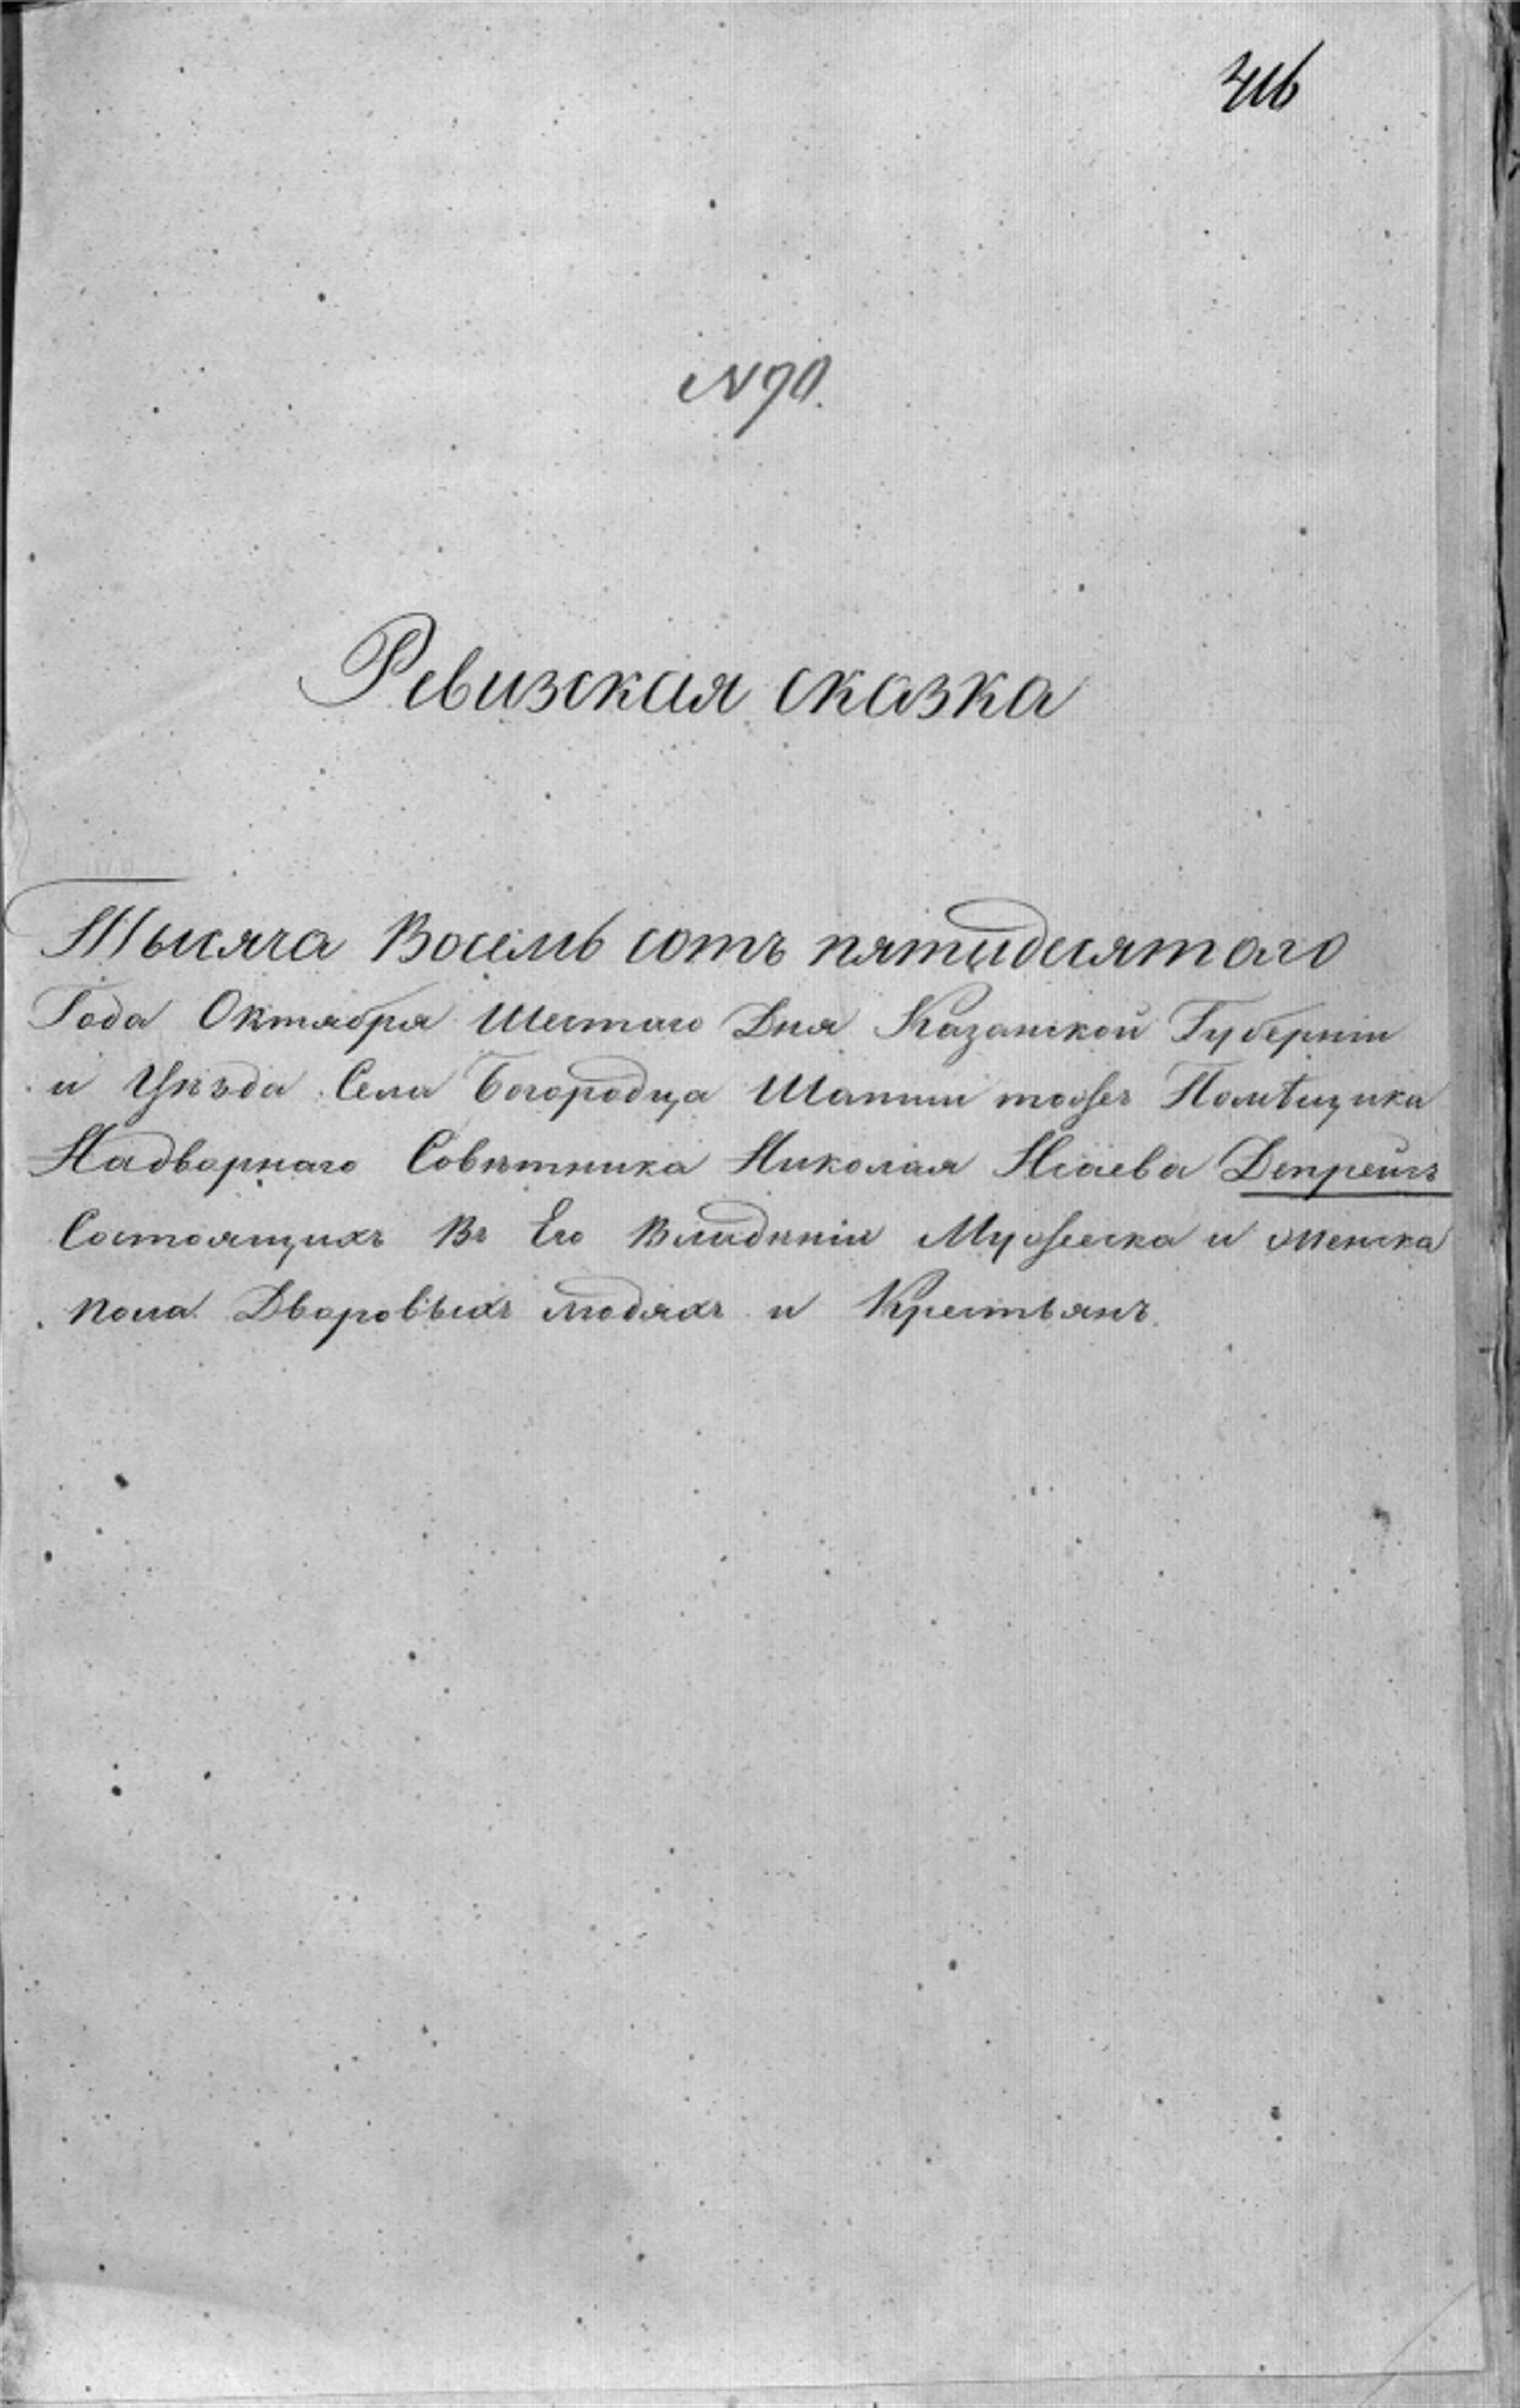 416
N 90.
Ревизская сказка
Тысяча Восемь сотъ пятидесятаго
Года Октября Шестаго Дня Казанской Губерніи
и Уѣзда Села Богородца Шапши тожъ Помѣщика
Надворнаго Совѣтника Николая Исаева Депрейсъ
Состоящихъ Въ Его Владѣніи Мужеска и женска
пола Дворовыхъ людяхъ и Крестьянъ.